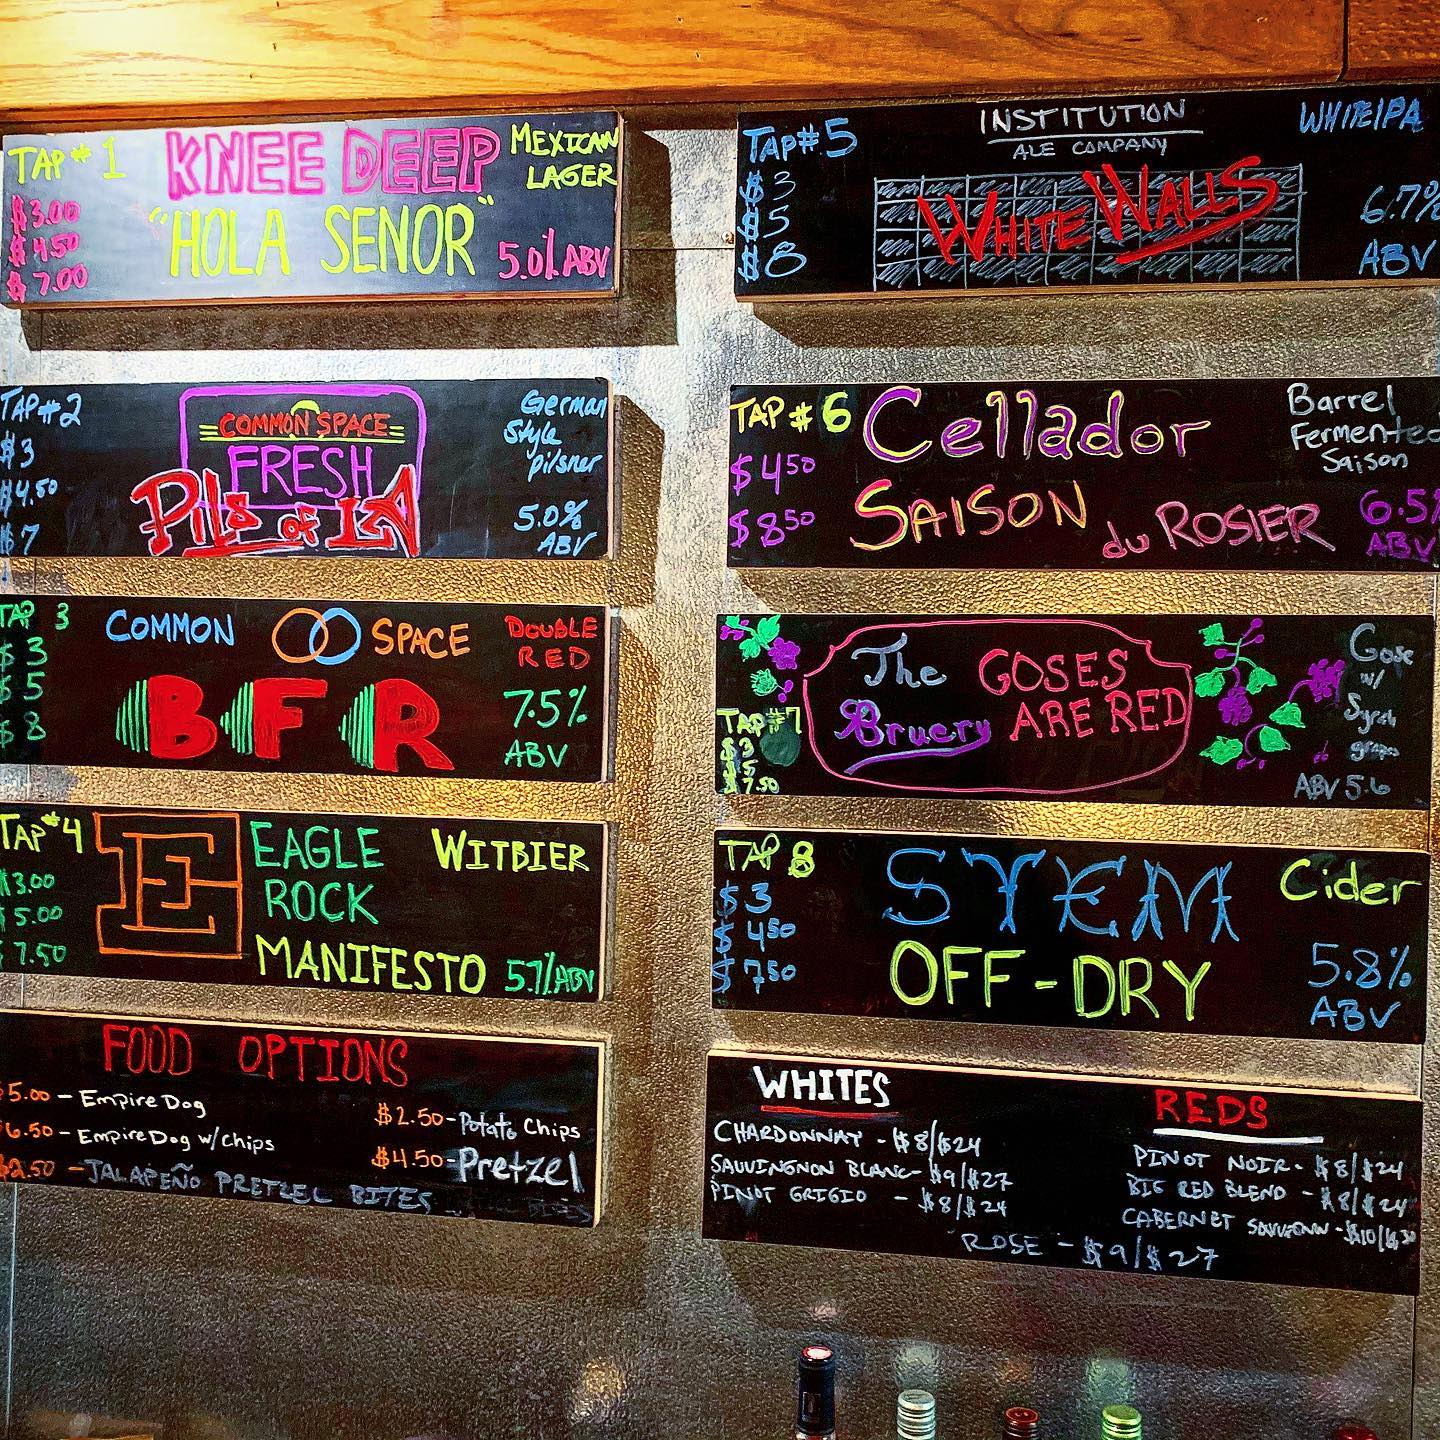 TAP #1
KNEE DEEP
MEXICAN
LAGER
"HOLA SENOR"
$3.00
$4.50
$7.00
5.0% ABV
TAP #2
$3
$4.50
$7
COMMON SPACE
FRESH
Pils of LA
German
Style
pilsner
5.0%
ABV
TAP 3
$3
$5
$8
COMMON SPACE
BFR
DOUBLE
RED
7.5%
ABV
TAP #4
$3.00
$5.00
$7.50
E
EAGLE
ROCK
MANIFESTO
WITBIER
5.7% ABV
FOOD OPTIONS
$5.00 - Empire Dog
$6.50 - Empire Dog w/chips
$2.50 - JALAPEÑO PRETZEL BITES
$2.50 - Potato Chips
$4.50 - Pretzel
TAP #5
$3
$5
$8
INSTITUTION
ALE COMPANY
WHITE WALLS
WHITE IPA
6.7%
ABV
TAP #6
$4.50
$8.50
Cellador
SAISON du ROSIER
Barrel
Fermented
Saison
6.5%
ABV
TAP #7
$3
$5
$7.50
The
Bruery
GOSES
ARE RED
Gose
w/
Syrah
grapes
ABV 5.6
TAP 8
$3
$4.50
$7.50
STEM
OFF-DRY
Cider
5.8%
ABV
WHITES
CHARDONNAY - $8/$24
SAUVINGNON BLANC - $9/$27
PINOT GRIGIO - $8/$24
REDS
PINOT NOIR - $8/$24
BIG RED BLEND - $8/$24
CABERNET - $10/$30
ROSE - $9/$27